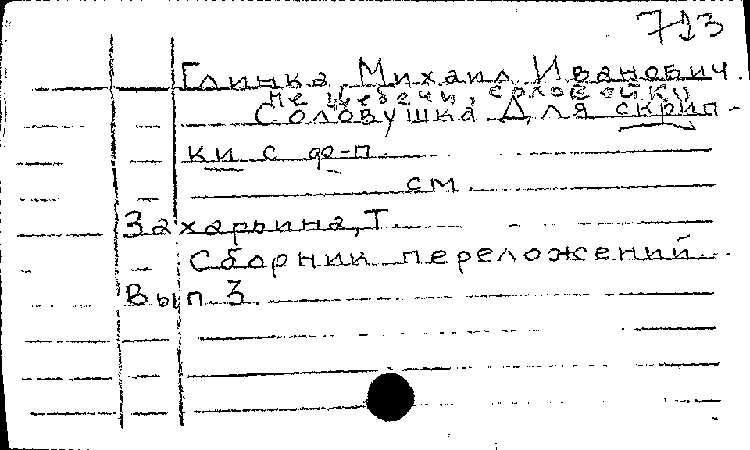 713
Глинка, Михаил Иванович.
Не щебечи, соловейку
Соловушка Для скрип-
ки с ф-п.
см.
Захарьина, Т.
Сборник переложений.
Вып 3.